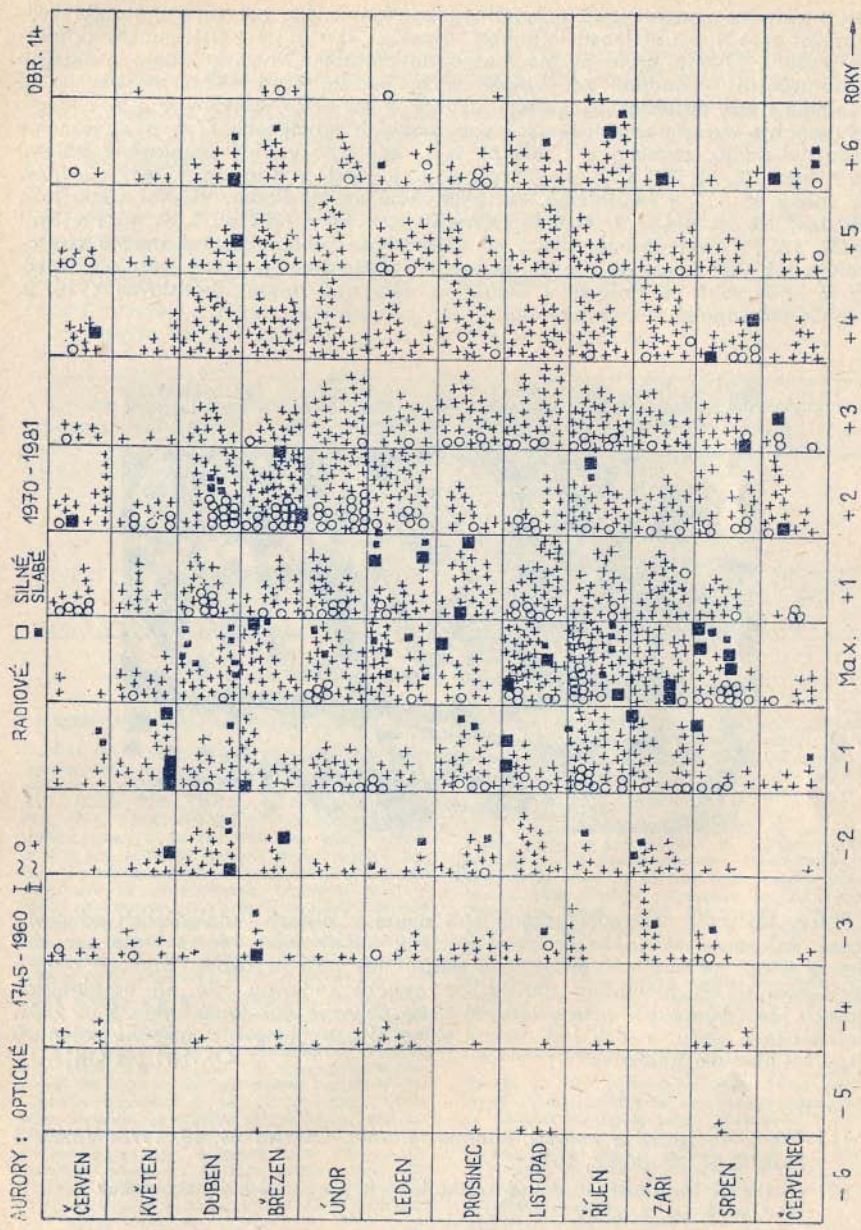 AURORY : OPTICKÉ 1745-1960 I ~ o RADIOVÉ □ SILNÉ 1970-1981 OBR. 14
II ~ + ■ SLABÉ
ČERVEN
KVĚTEN
DUBEN
BŘEZEN
ÚNOR
LEDEN
PROSINEC
LISTOPAD
ŘÍJEN
ZÁŘÍ
SRPEN
ČERVENEC
-6 -5 -4 -3 -2 -1 Max. +1 +2 +3 +4 +5 +6 ROKY →